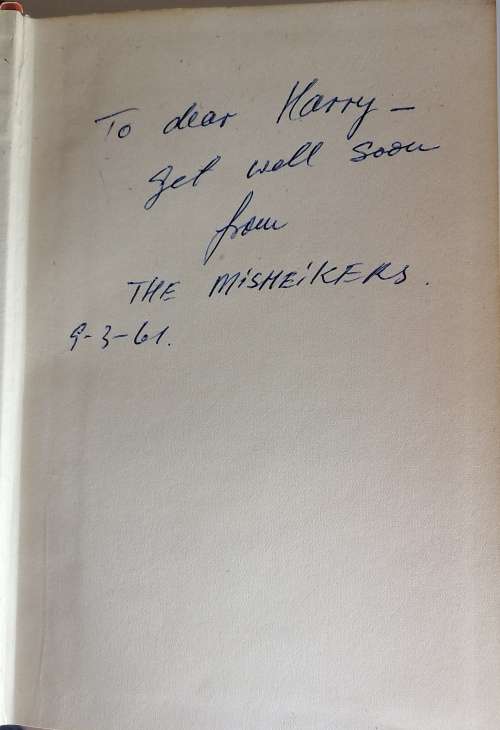 To dear Harry –
get well soon
from
THE MiSHEiKERS.
9-3-61.